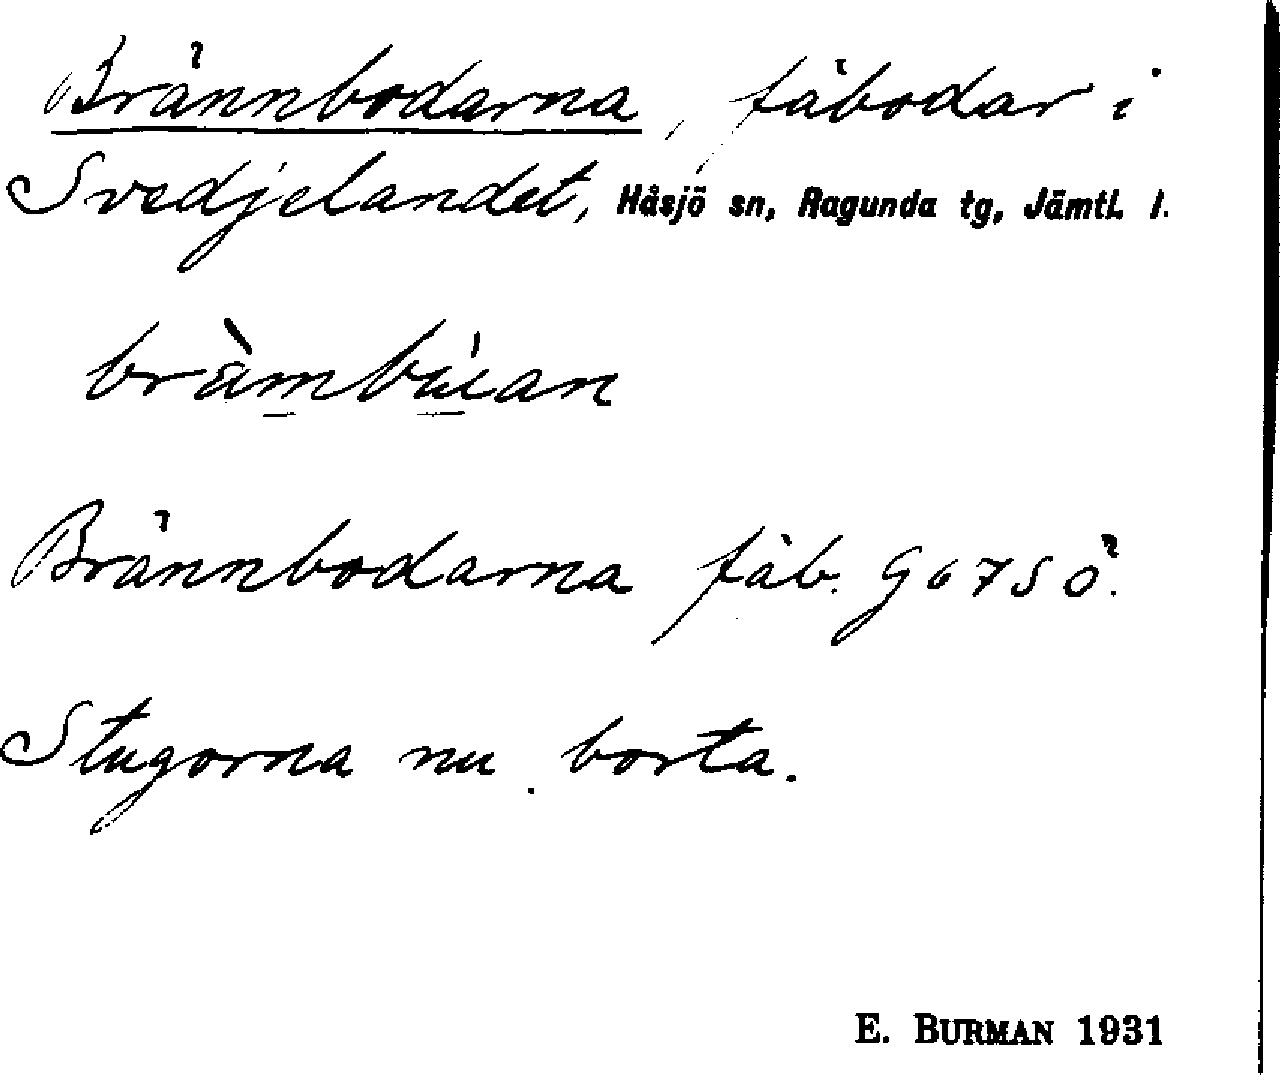 Brännbodarna, fäbodar i
Svedjelandet, Håsjö sn, Ragunda tg, Jämtl. l.
bràmbúan
Brännbodarna fäb. G67SÖ.
Stugorna nu borta.
E. BURMAN 1931